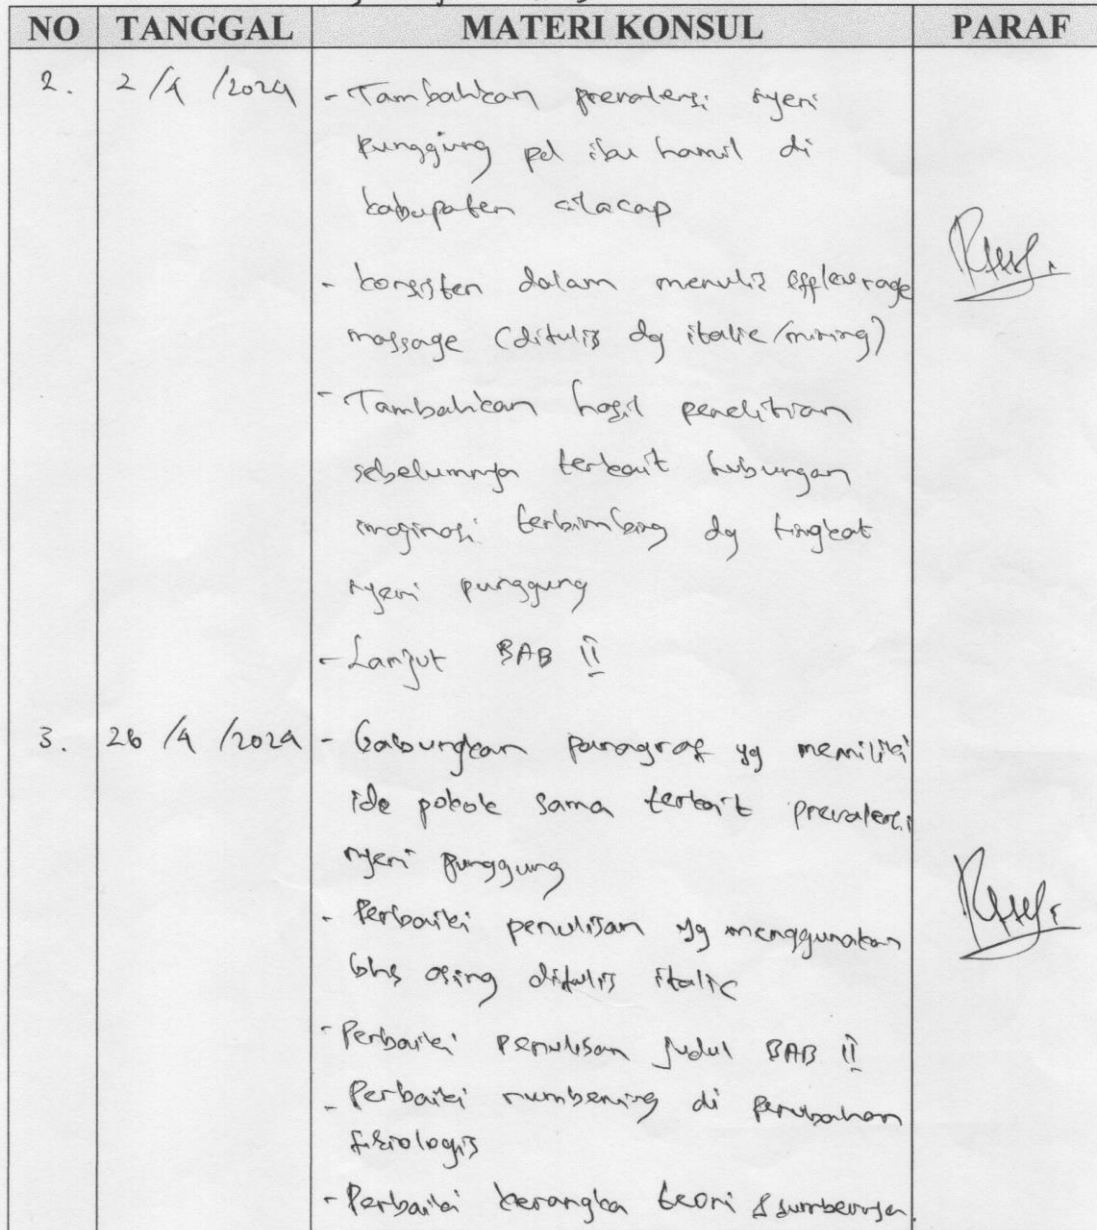 NO TANGGAL MATERI KONSUL PARAF
2. 2/4/2024 - Tambahkan prevalensi nyeri
punggung pd ibu hamil di
kabupaten cilacap
- konsisten dalam menulis effleurage
massage (ditulis dg italic/miring)
- Tambahkan hasil penelitian
sebelumnya terkait hubungan
imaginasi terbimbing dg tingkat
nyeri punggung
- Lanjut BAB II
3. 26/4/2024 - Gabungkan paragraf yg memiliki
ide pokok sama terkait prevalensi
nyeri punggung
- Perbaiki penulisan yg menggunakan
bhs asing ditulis italic
- Perbaiki penulisan judul BAB II
- Perbaiki numbering di perubahan
fisiologis
- Perbaiki kerangka teori & sumbernya.